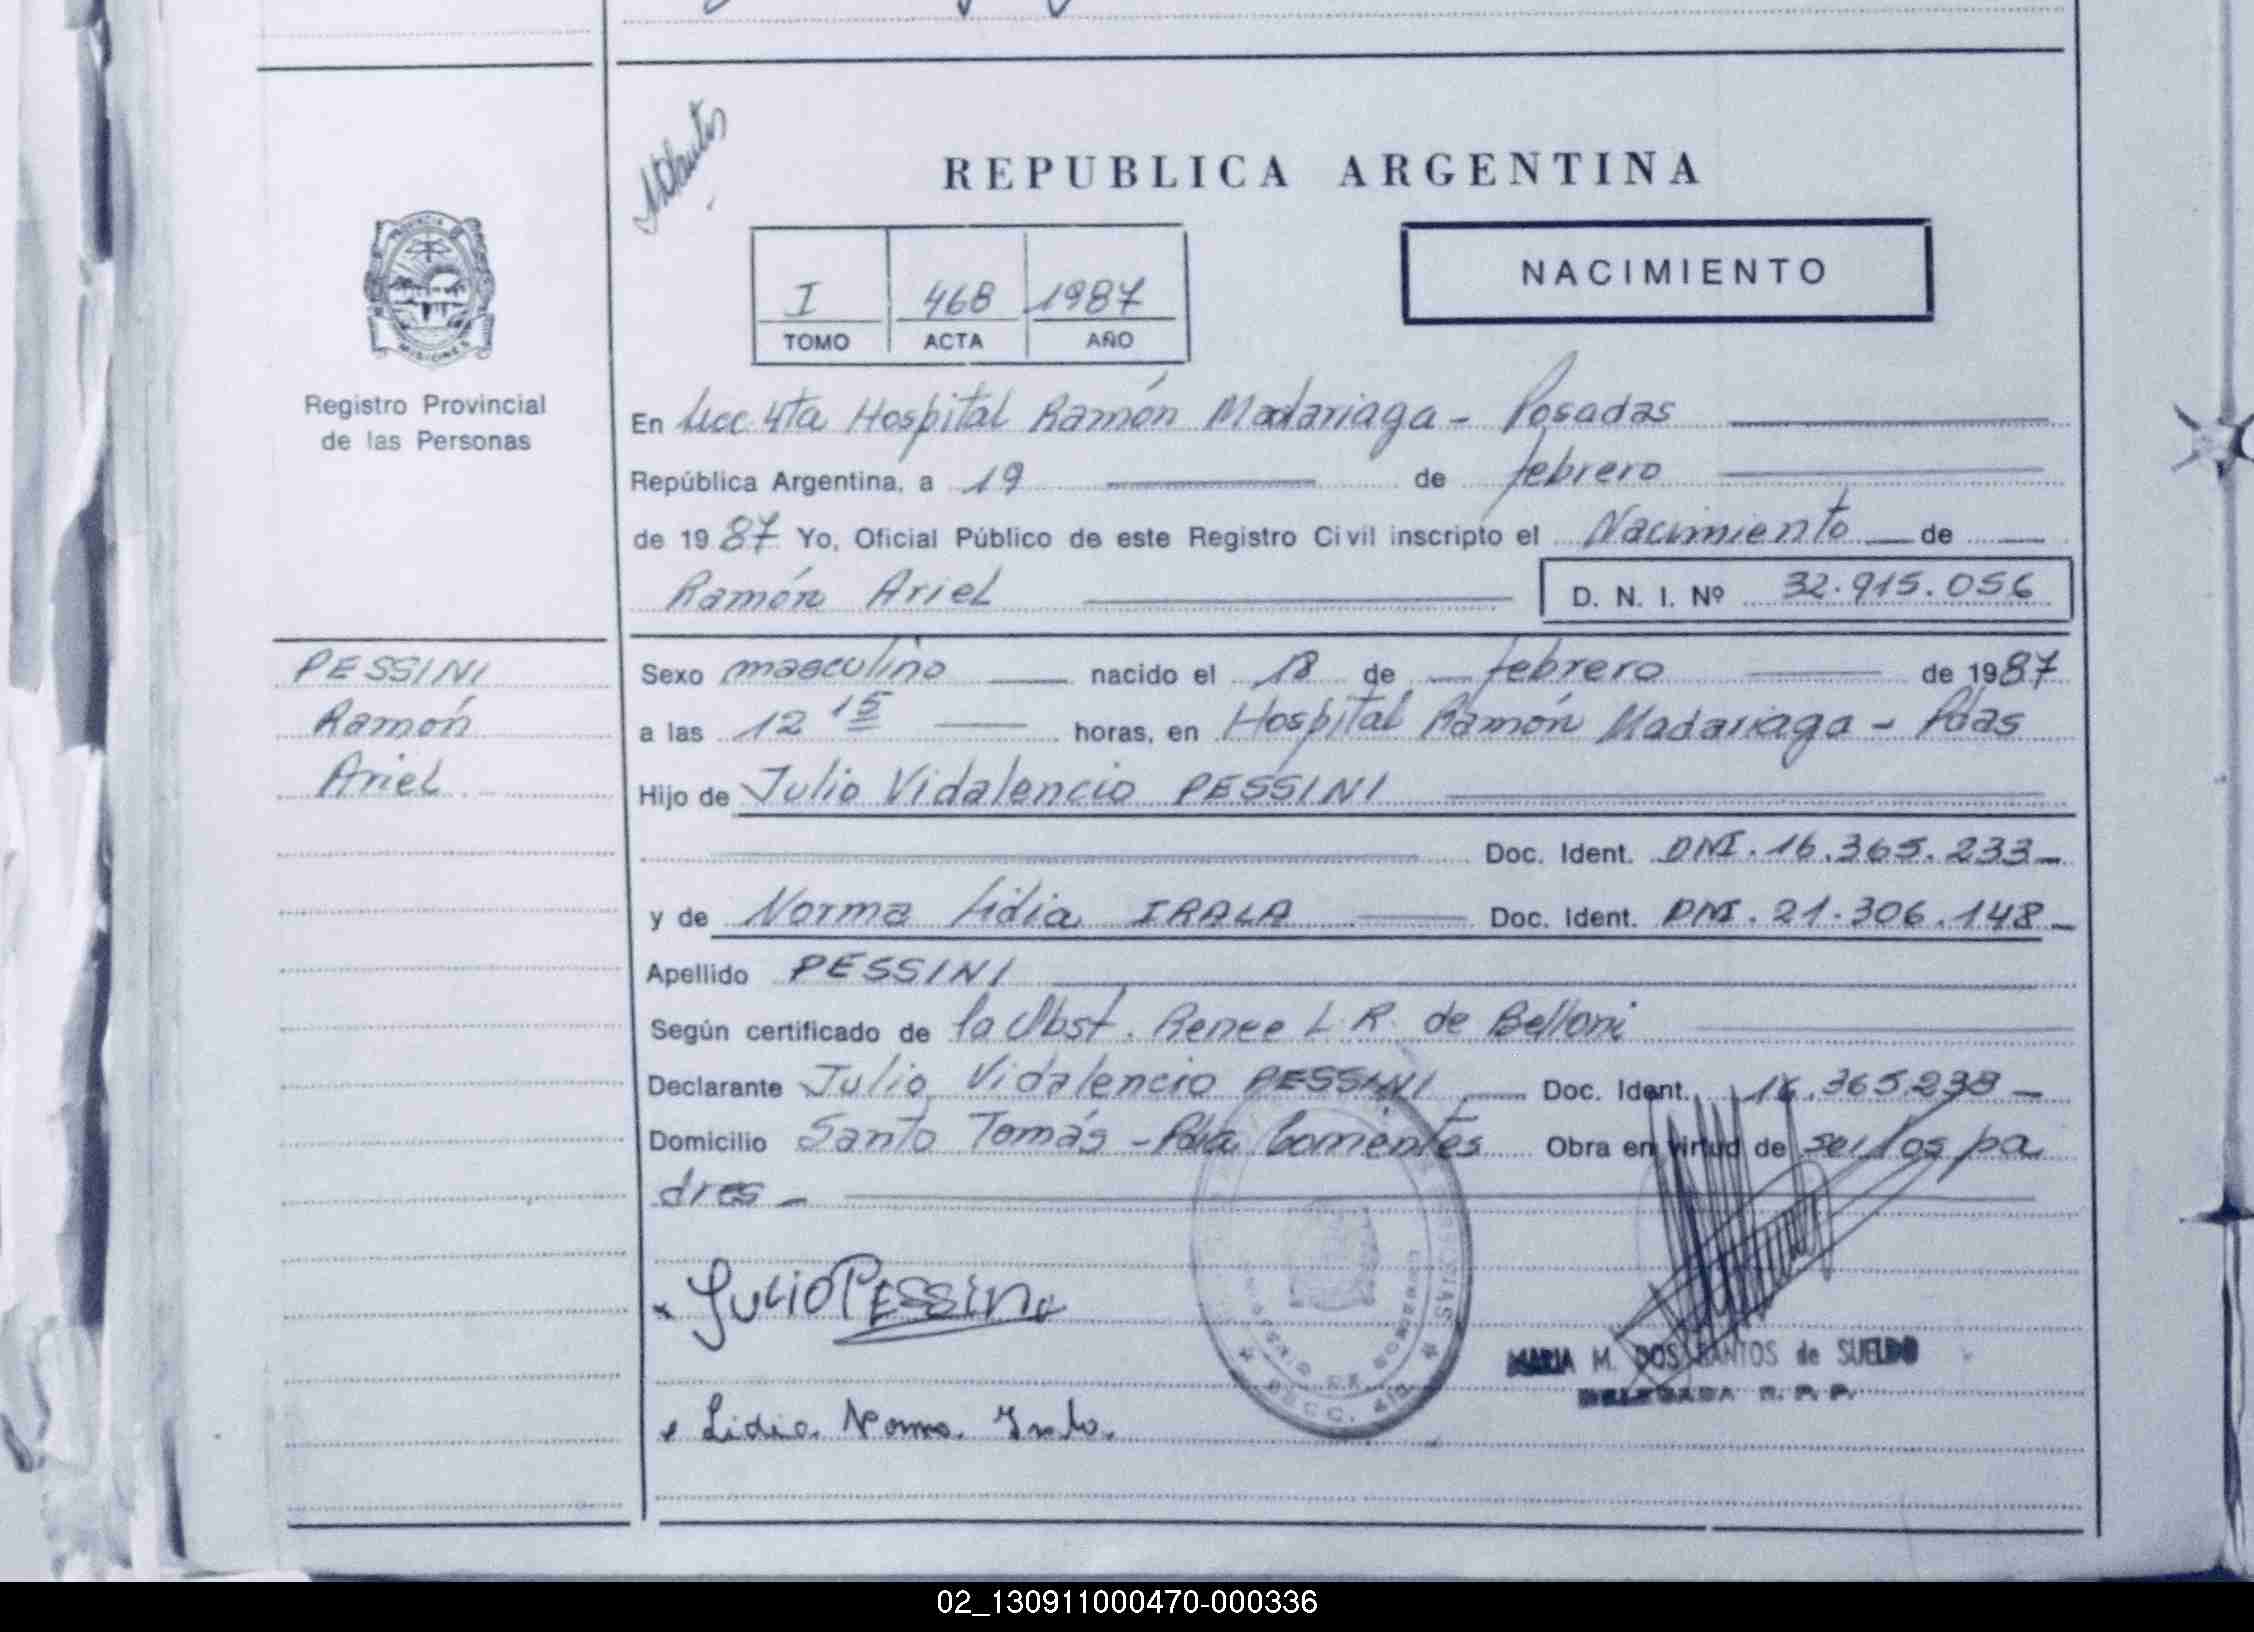 REPUBLICA ARGENTINA
NACIMIENTO
I 468 1987
TOMO ACTA AÑO
PROVINCIA DE
MISIONES
Registro Provincial
de las Personas
En Secc. 4ta Hospital Ramón Madariaga - Posadas
República Argentina, a 19 de febrero
de 1987 Yo, Oficial Público de este Registro Civil inscripto el Nacimiento de
Ramón Ariel D. N. I. Nº 32.915.056
PESSINI
Ramón
Ariel
Sexo masculino nacido el 18 de febrero de 1987
a las 12 15 horas, en Hospital Ramón Madariaga - Pdas
Hijo de Julio Vidalencio PESSINI
Doc. Ident. DNI. 16.365.233
y de Norma Lidia IRALA Doc. Ident. DNI. 21.306.148
Apellido PESSINI
Según certificado de la Obst. Renee L. R. de Belloni
Declarante Julio Vidalencio PESSINI Doc. Ident. 16.365.233
Domicilio Santo Tomás - Pcia Corrientes Obra en virtud de ser los pa
dres
Julio Pessini
Lidia Norma
MARIA M. DOS SANTOS de SUELDO
DELEGADA R. P. P.
02_130911000470-000336